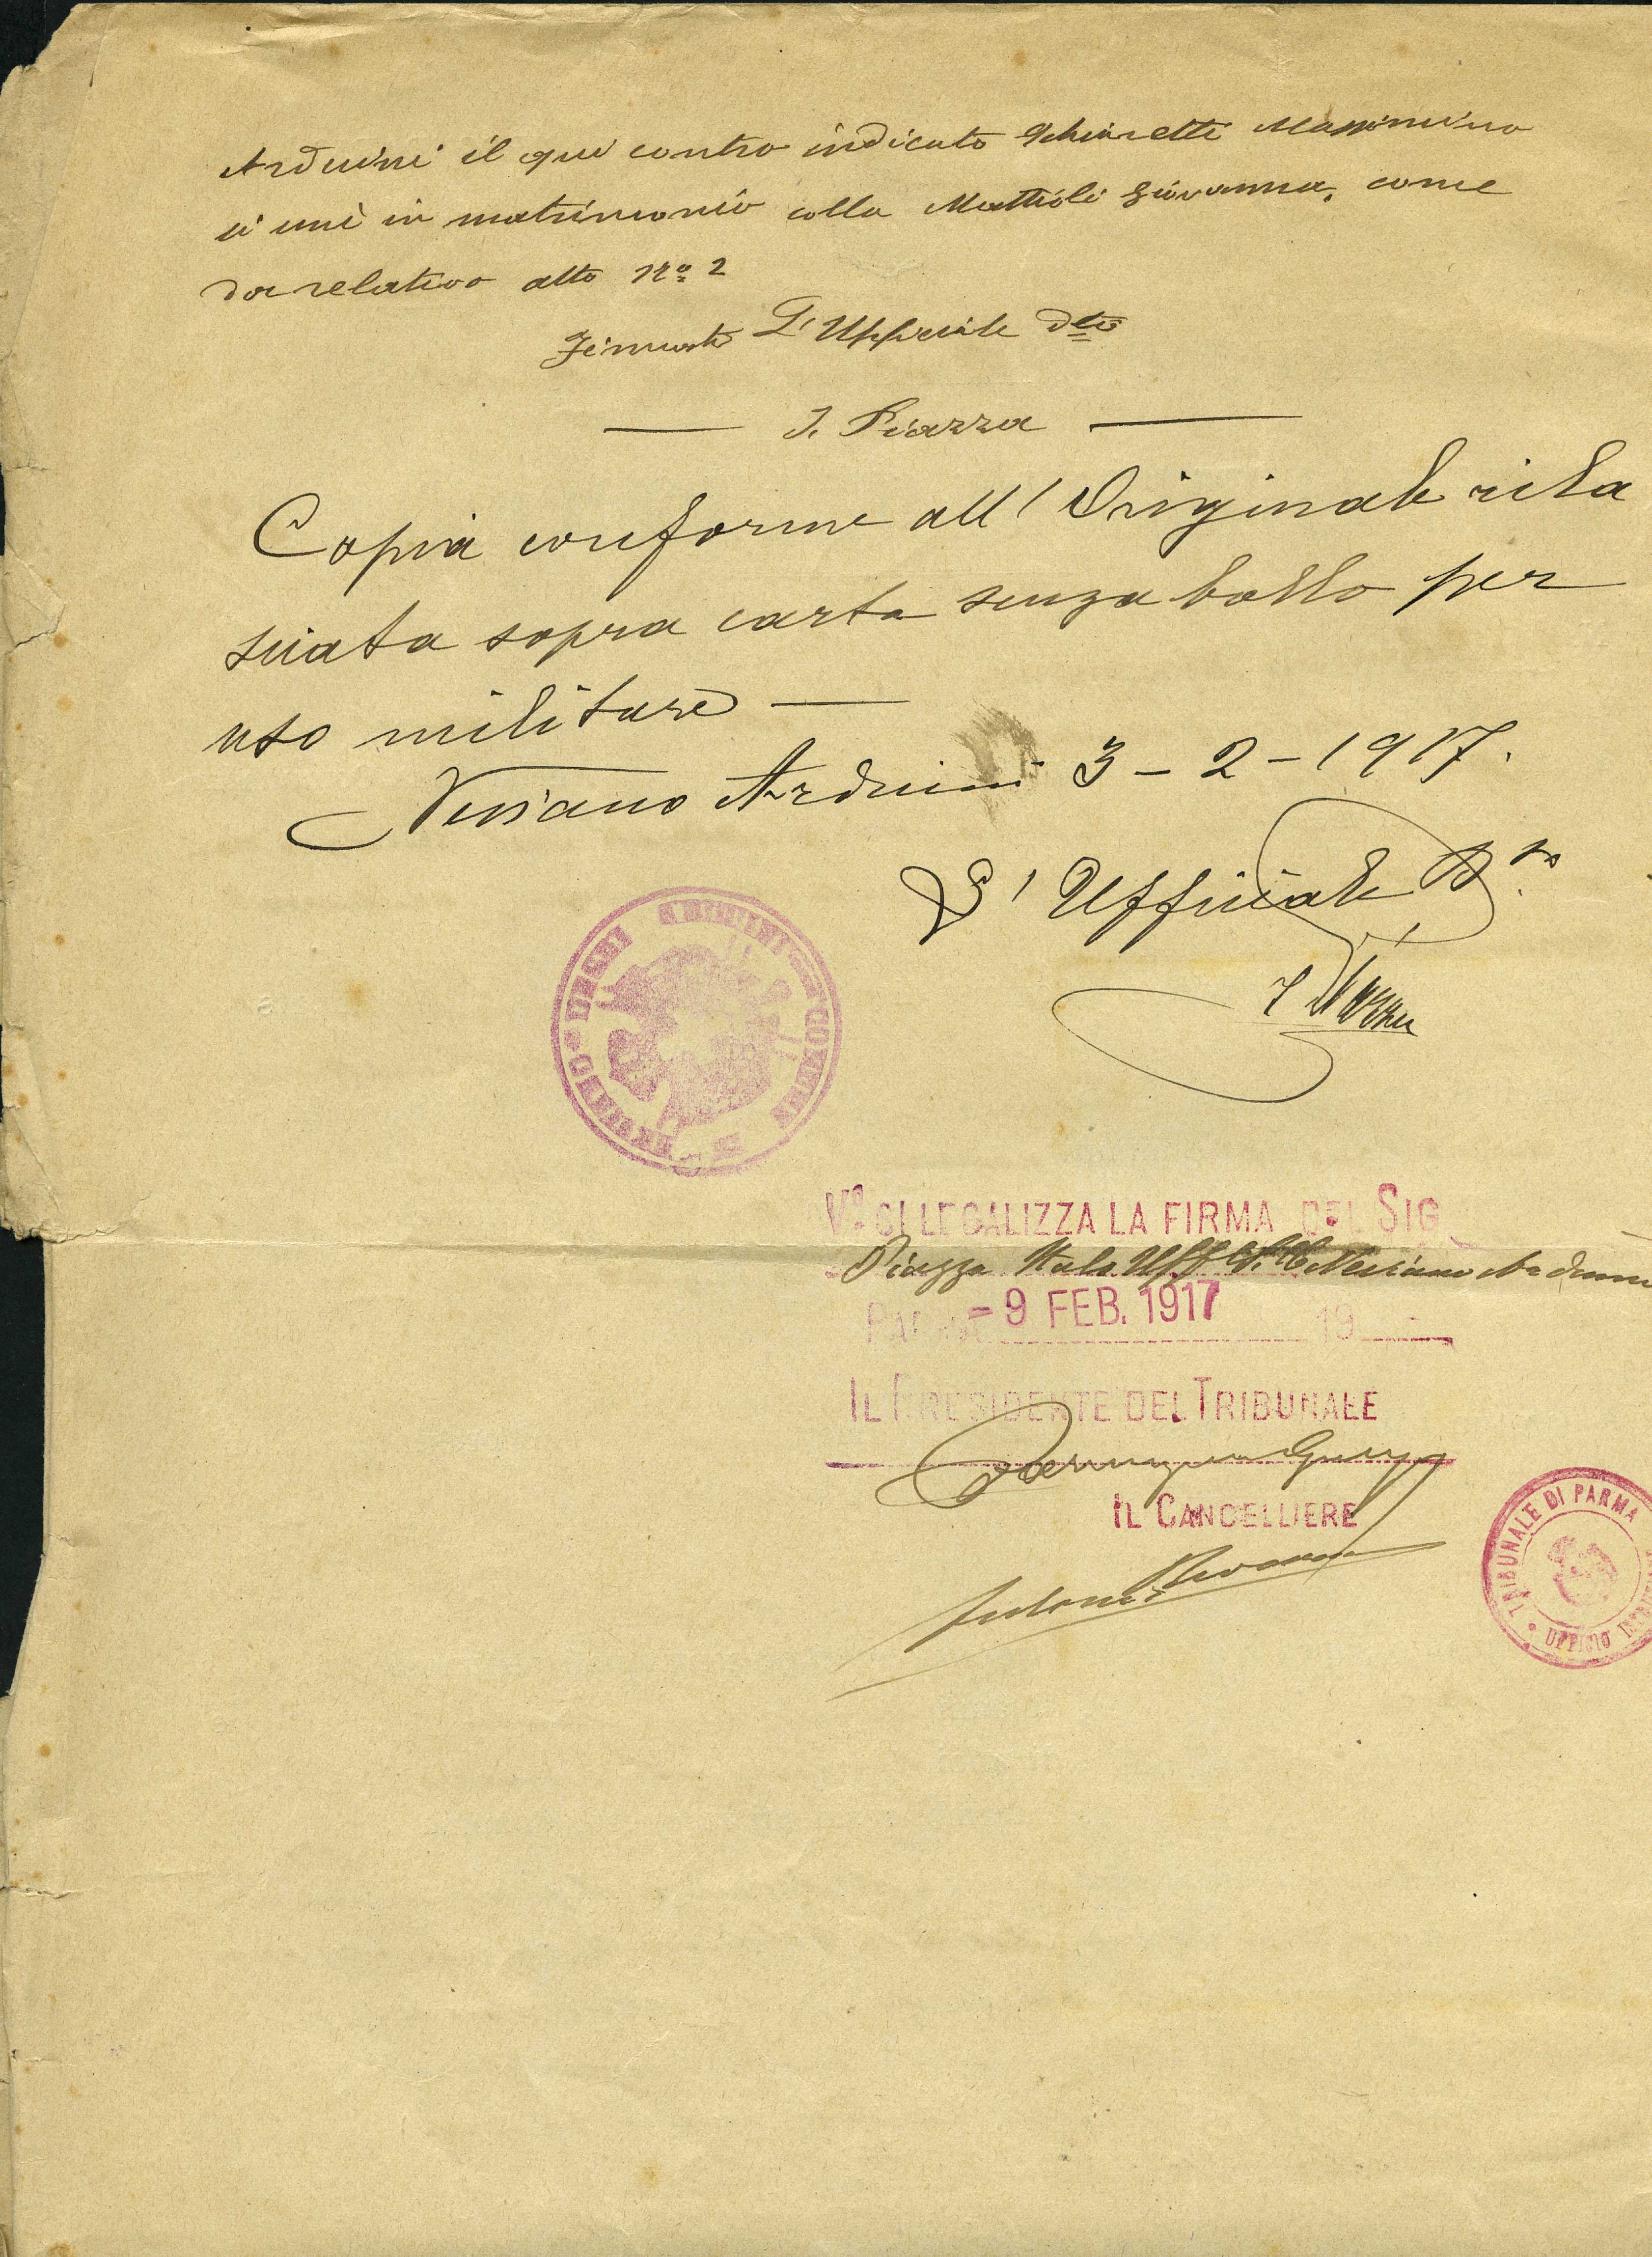 Arduini il qui contro indicato Schiaretti Massimino
si unì in matrimonio colla Mattioli Giovanna, come
da relativo atto Nº 2
Firmato L'Ufficiale Dto
I. Piazza
Copia conforme all'Originale rila
sciata sopra carta senza bollo per
uso militare
Neviano Arduini 3-2-1917.
L'Ufficiale
I Piazza
COMUNE DI NEVIANO DEGLI ARDUINI
Vº SI LEGALIZZA LA FIRMA DEL SIG
Piazza Italo Uff Neviano Arduini
PARMA - 9 FEB. 1917 19
IL PRESIDENTE DEL TRIBUNALE
IL CANCELLIERE
TRIBUNALE DI PARMA
UFFICIO